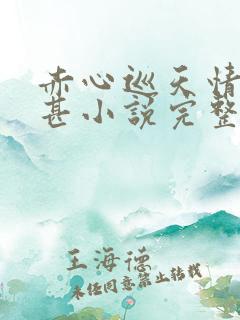 赤心巡天情
甚小说完整
王海德
未经同意禁止转载